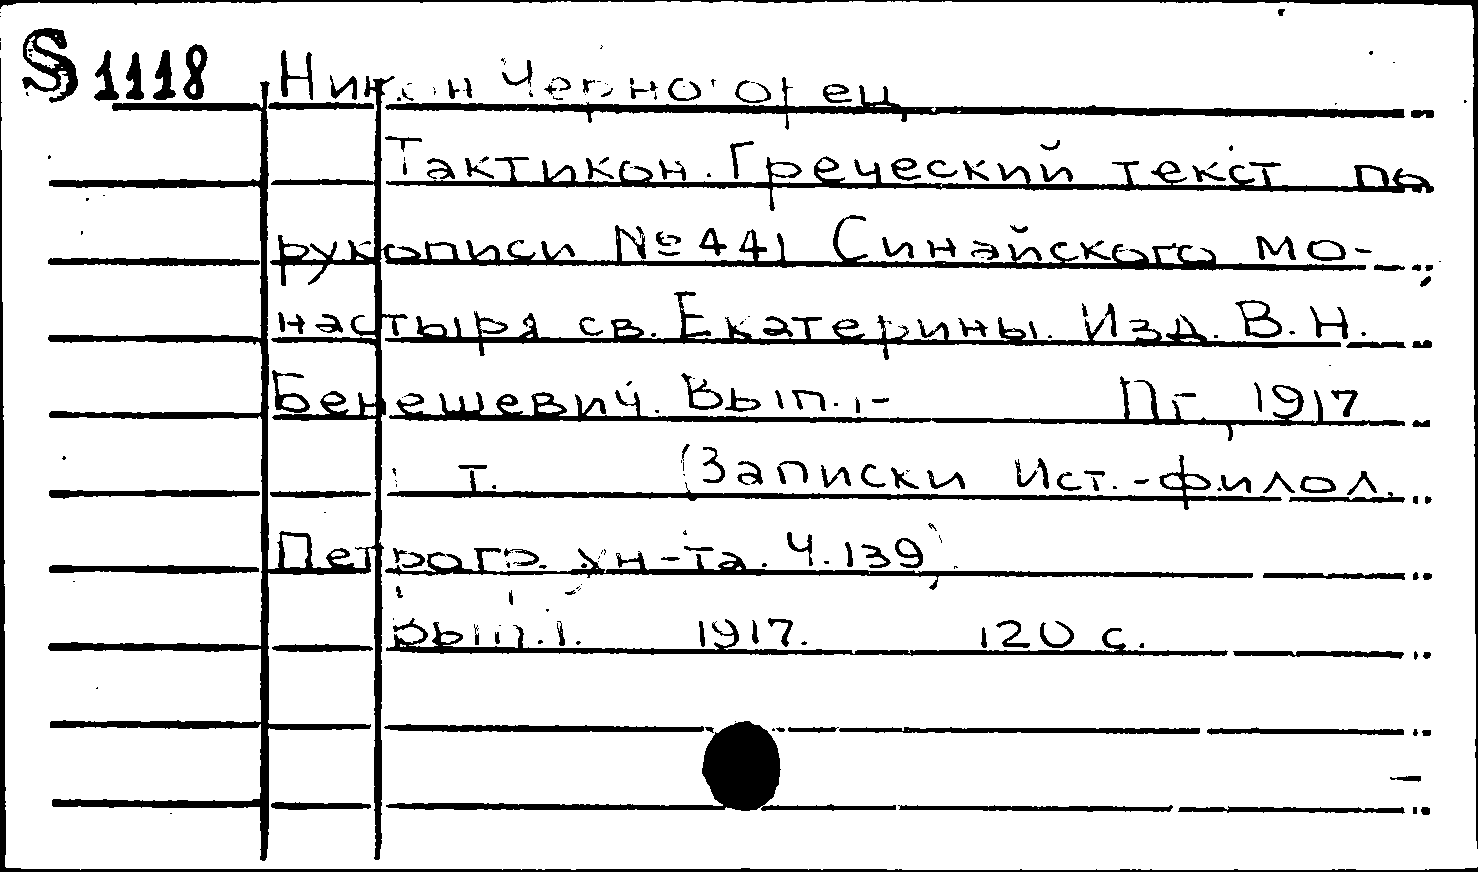 S 1118 Никон Черногорец
Тактикон. Греческий текст по
рукописи № 441 Синайского мо-
настыря св. Екатерины. Изд. В. Н.
Бенешевич. Вып. 1- Пг, 1917
т. (Записки Ист.-филол.
Петрогр. ун-та. Ч. 139)
Вып. 1. 1917. 120 с.